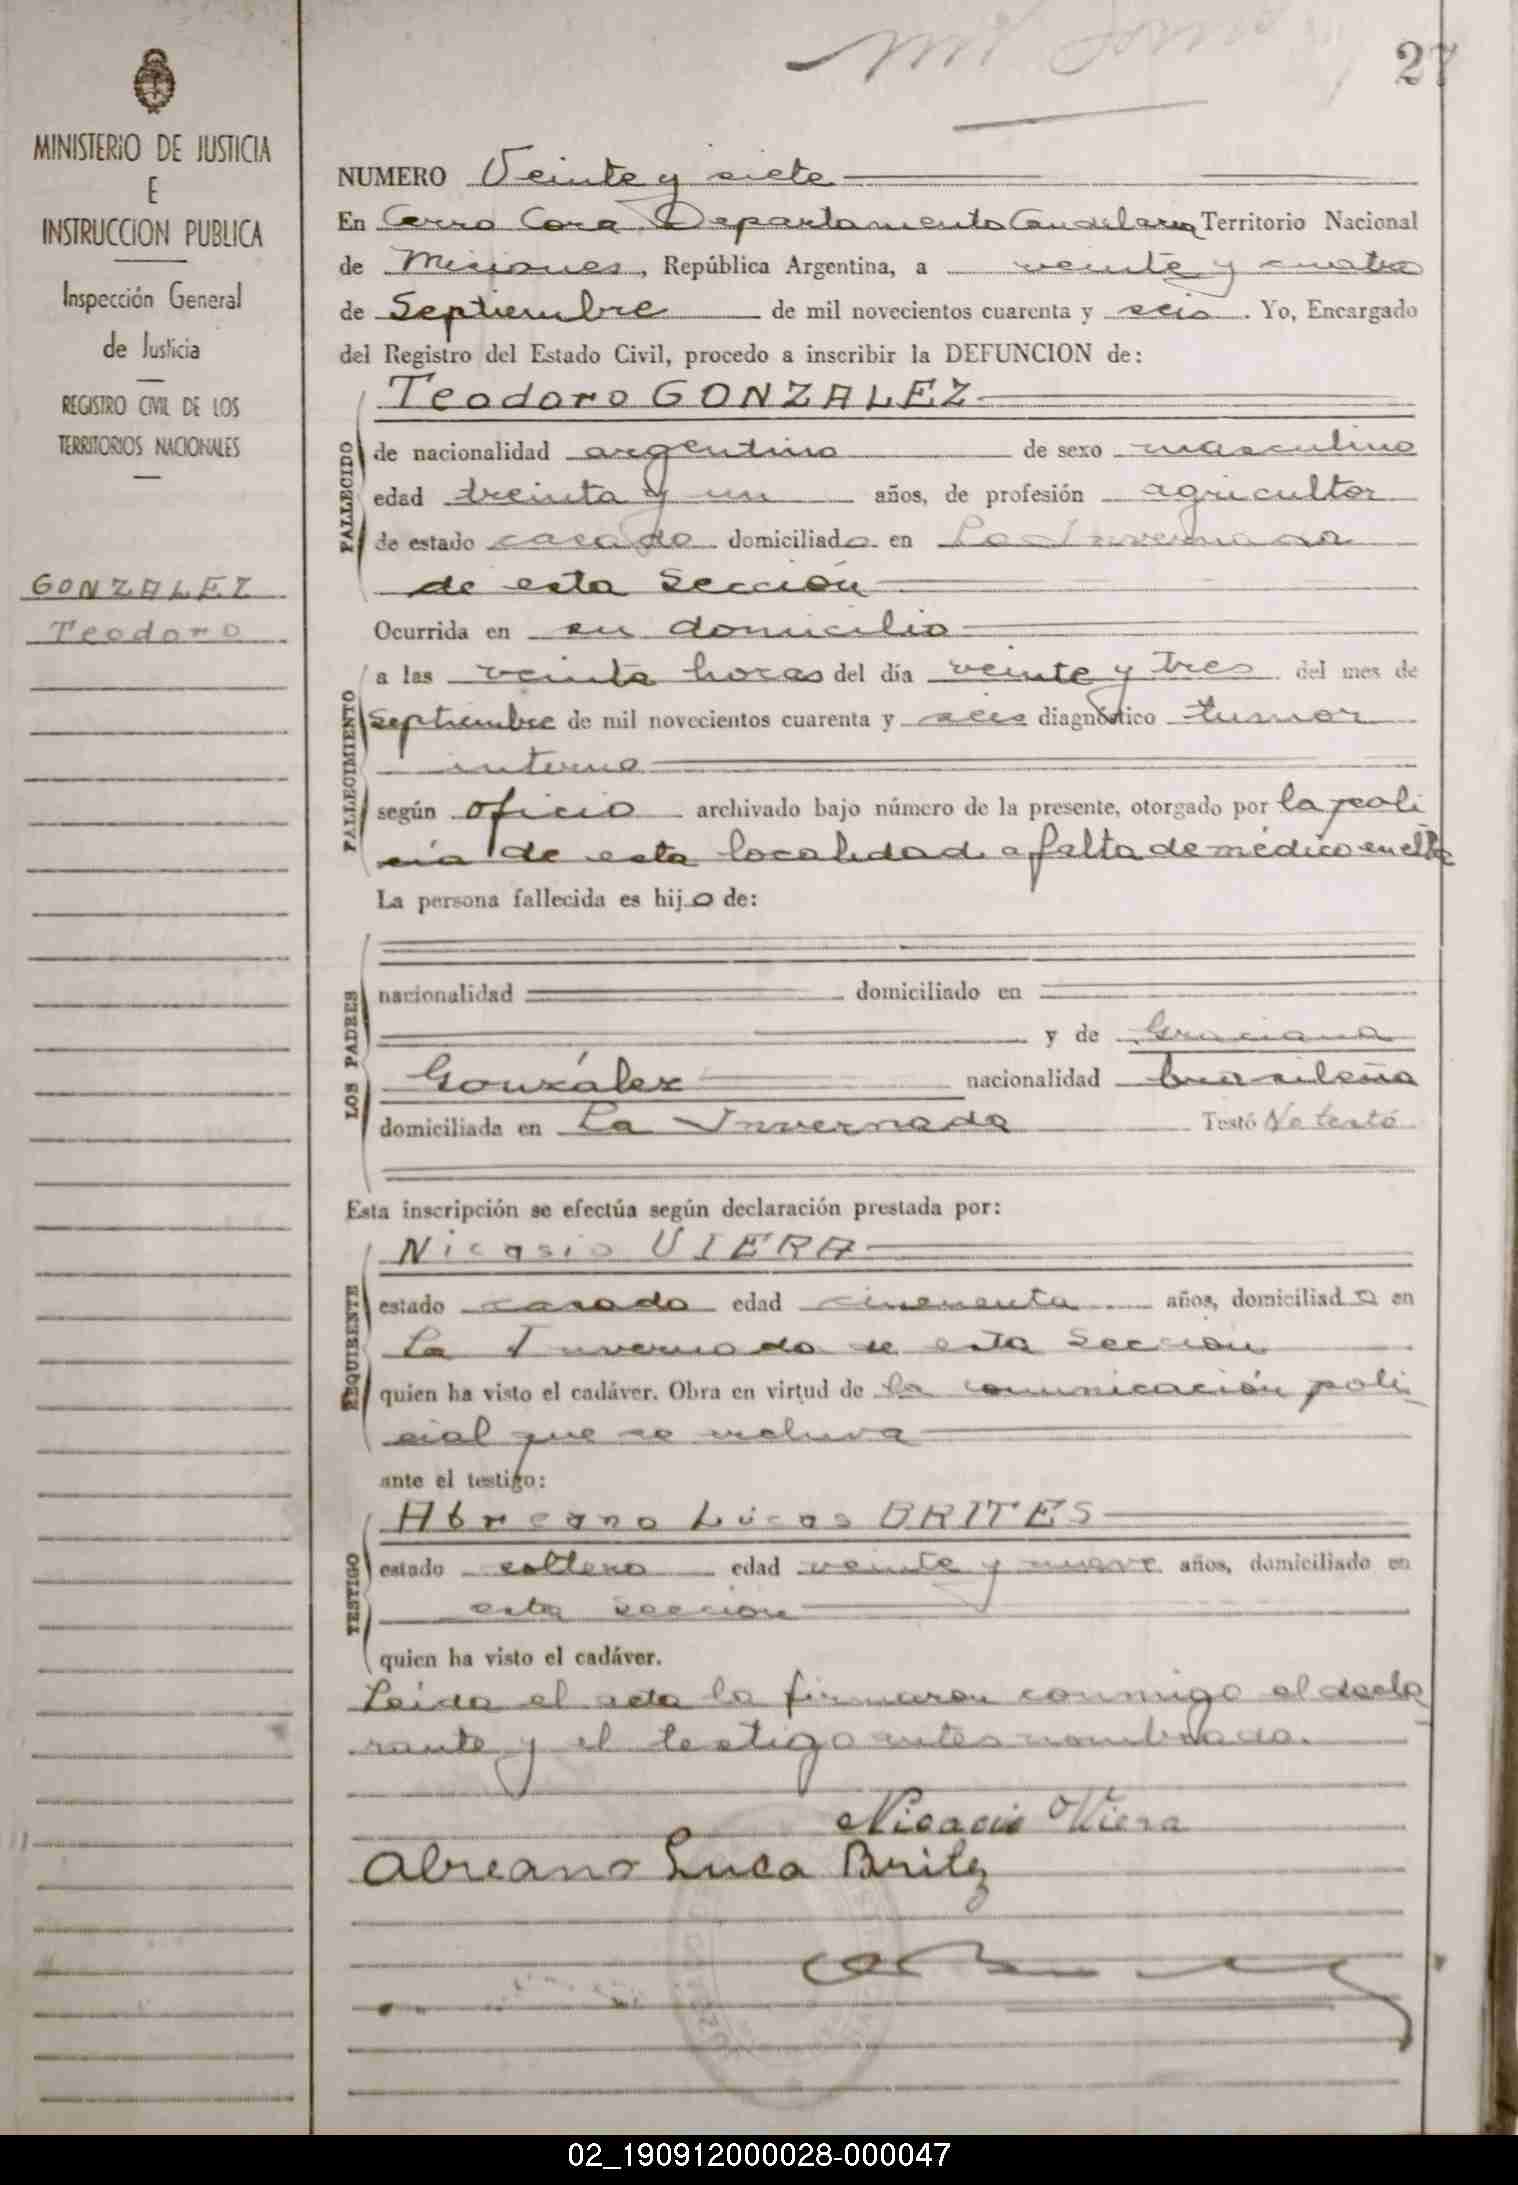 27
MINISTERIO DE JUSTICIA
E
INSTRUCCION PUBLICA
Inspección General
de Justicia
REGISTRO CIVIL DE LOS
TERRITORIOS NACIONALES
GONZALEZ
Teodoro
NUMERO Veinte y siete
En Cerro Cora Departamento Candelaria Territorio Nacional
de Misiones, República Argentina, a veinte y cuatro
de Septiembre de mil novecientos cuarenta y seis. Yo, Encargado
del Registro del Estado Civil, procedo a inscribir la DEFUNCION de:
Teodoro GONZALEZ
FALLECIDO
de nacionalidad argentino de sexo masculino
edad treinta y un años, de profesión agricultor
de estado casado domiciliado en La Invernada
de esta Sección
Ocurrida en su domicilio
FALLECIMIENTO
a las veinte horas del día veinte y tres del mes de
Septiembre de mil novecientos cuarenta y seis diagnóstico tumor
interno
según oficio archivado bajo número de la presente, otorgado por la poli
cia de esta localidad a falta de médico en ella
La persona fallecida es hijo de:
LOS PADRES
nacionalidad domiciliado en
y de Graciana
González nacionalidad brasileña
domiciliada en La Invernada Testó No testó
Esta inscripción se efectúa según declaración prestada por:
REQUIRENTE
Nicasio VIERA
estado casado edad cincuenta años, domiciliado en
La Invernada de esta Sección
quien ha visto el cadáver. Obra en virtud de la comunicación poli
cial que se archiva
ante el testigo:
TESTIGO
Abreano Lucas BRITES
estado soltero edad veinte y nueve años, domiciliado en
esta sección
quien ha visto el cadáver.
Leida el acta la firmaron conmigo el decla
rante y el testigo antes nombrado.
Nicacio Viera
Abreano Luca Britez
02_190912000028-000047